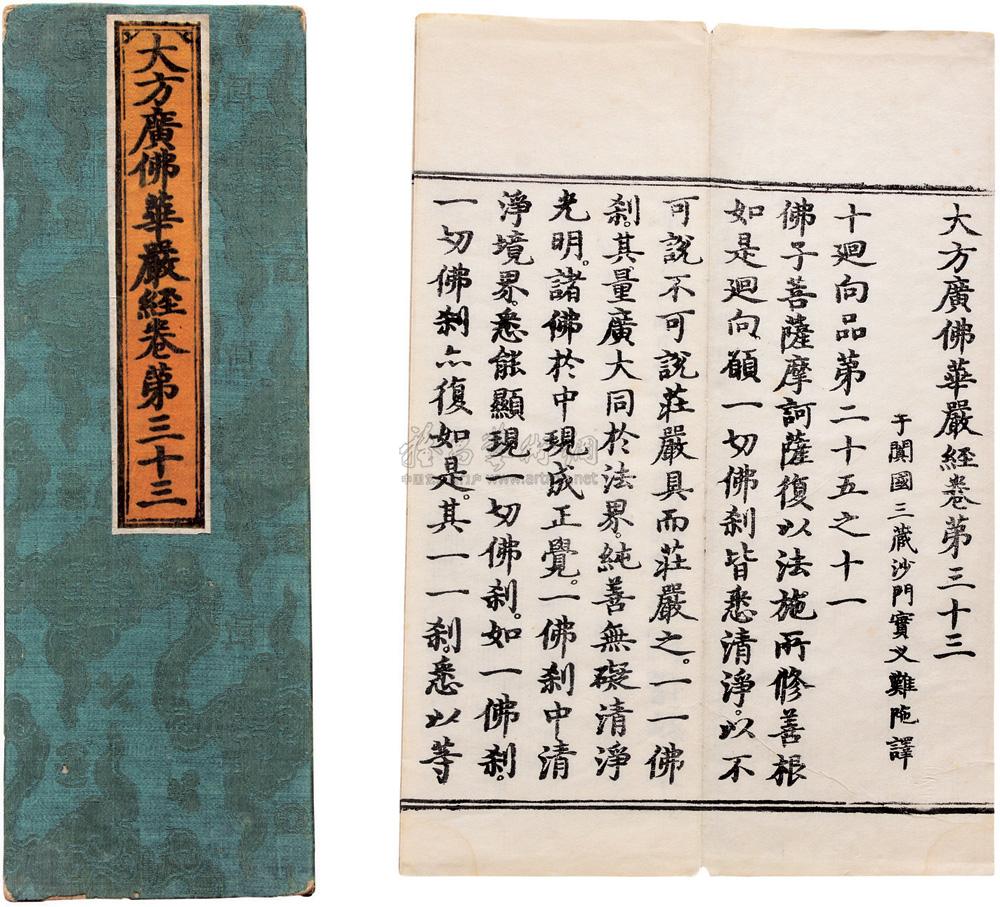 大方廣佛華嚴経卷第三十三
大方廣佛華嚴経卷第三十三
于闐國三藏沙門實义難陁譯
十廻向品第二十五之十一
佛子菩薩摩訶薩復以法施所修善根
如是廻向願一切佛刹皆悉清淨。以不
可說不可說莊嚴具而莊嚴之。一一佛
刹。其量廣大同於法界。純善無礙清淨
光明。諸佛於中現成正覺。一佛刹中清
淨境界。悉能顯現一切佛刹。如一佛刹。
一切佛刹亦復如是。其一一刹。悉以等